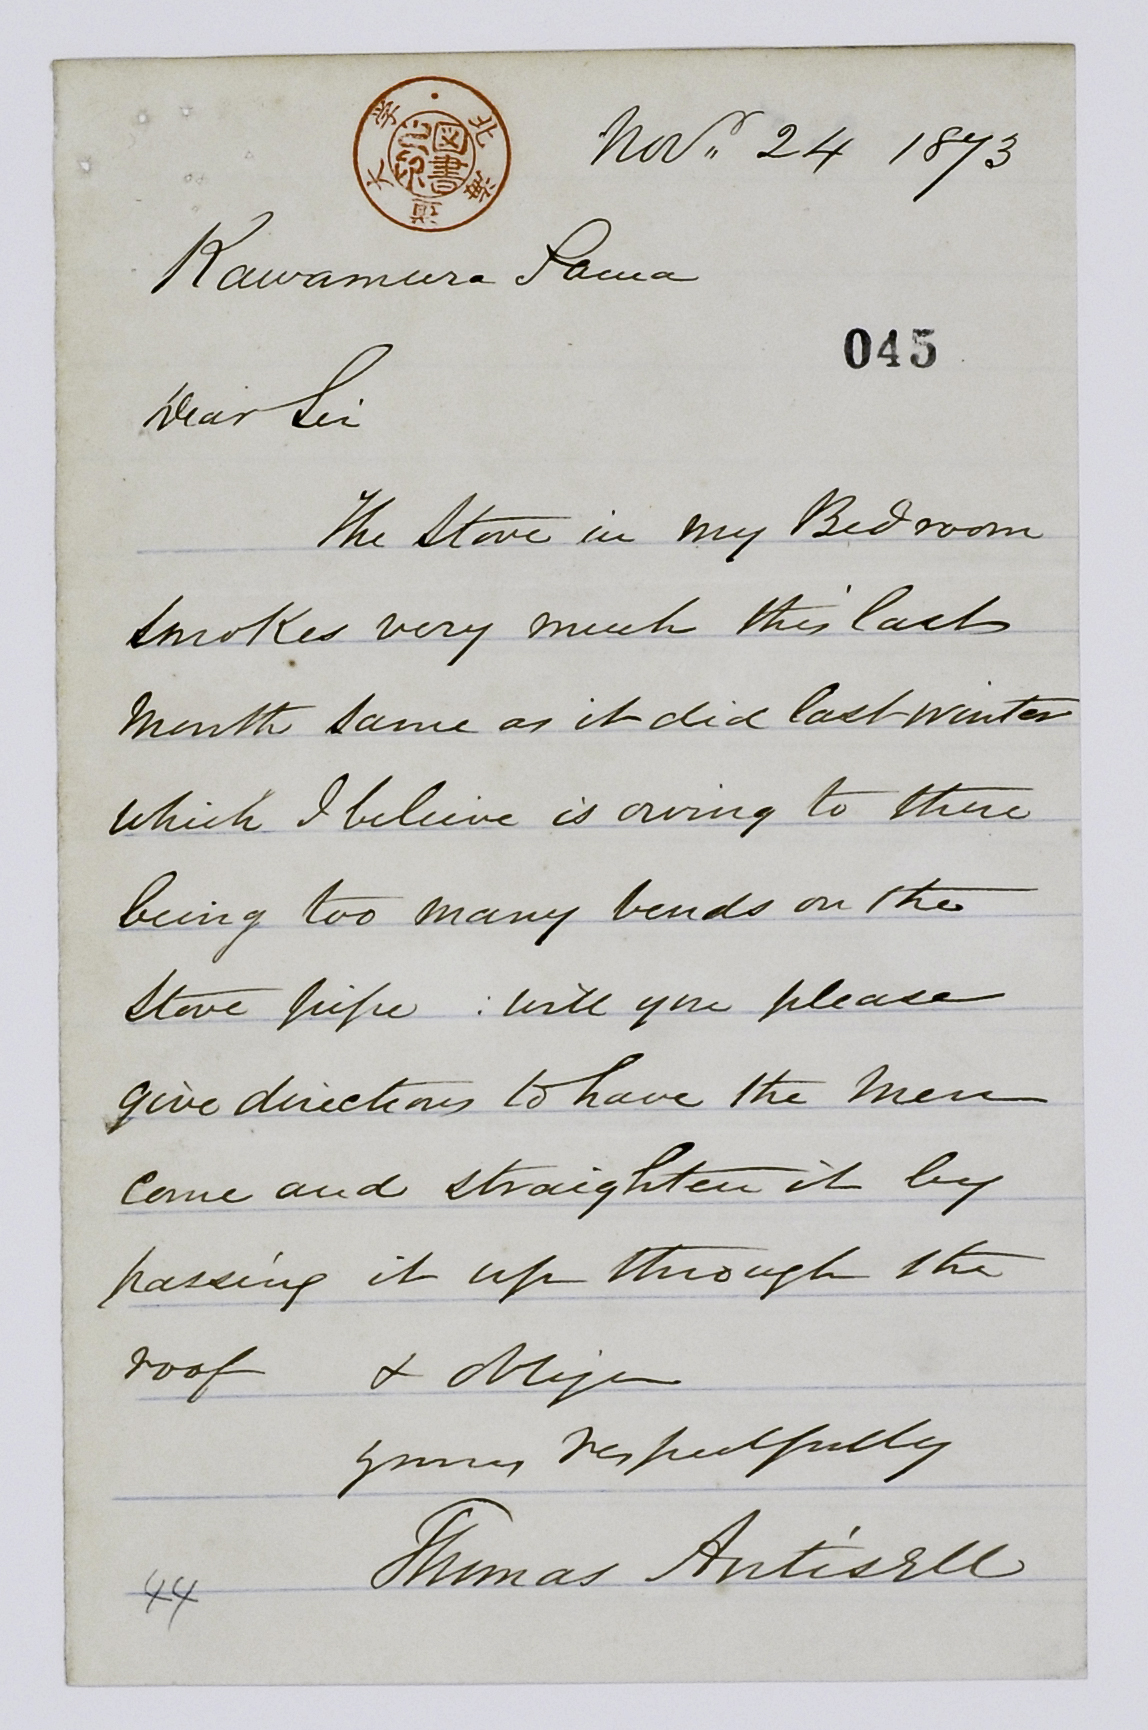 北海道大学
図書
Novr. 24 1873
Kawamura Sama
045
Dear Sir
The Stove in my Bedroom
smokes very much this last
Month same as it did last winter
which I believe is owing to there
being too many bends on the
Stove pipe : will you please
give directions to have the Men
come and straighten it by
passing it up through the
roof & oblige
yours respectfully
Thomas Antisell
44